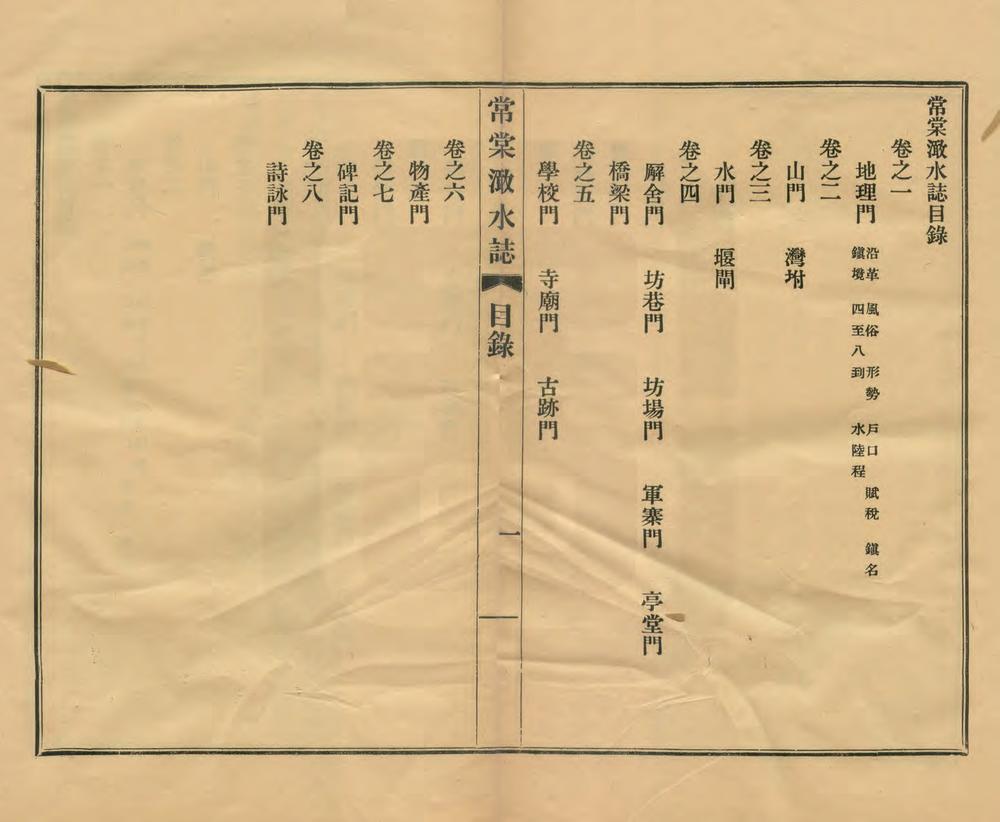 常棠澉水誌目錄
卷之一
地理門
沿革 風俗 形勢 戶口 賦稅 鎭名
鎭境 四至八到 水陸程
卷之二
山門 灣坿
卷之三
水門 堰閘
卷之四
廨舍門 坊巷門 坊場門 軍寨門 亭堂門
橋梁門
卷之五
學校門 寺廟門 古跡門
常棠澉水誌 目錄 一
卷之六
物產門
卷之七
碑記門
卷之八
詩詠門